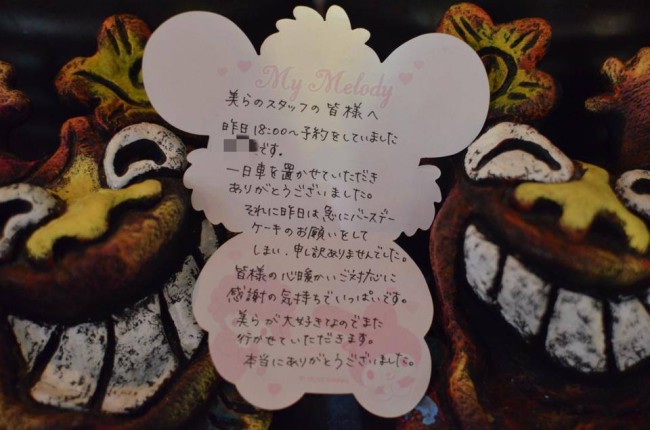 My Melody
美らのスタッフの皆様へ
昨日18:00〜予約をしていました
です。
一日車を置かせていただき
ありがとうございました。
それに昨日は急にバースデー
ケーキのお願いをして
しまい、申し訳ありませんでした。
皆様の心暖かいご対応に
感謝の気持ちでいっぱいです。
美らが大好きなのでまた
行かせていただきます。
本当にありがとうございました。